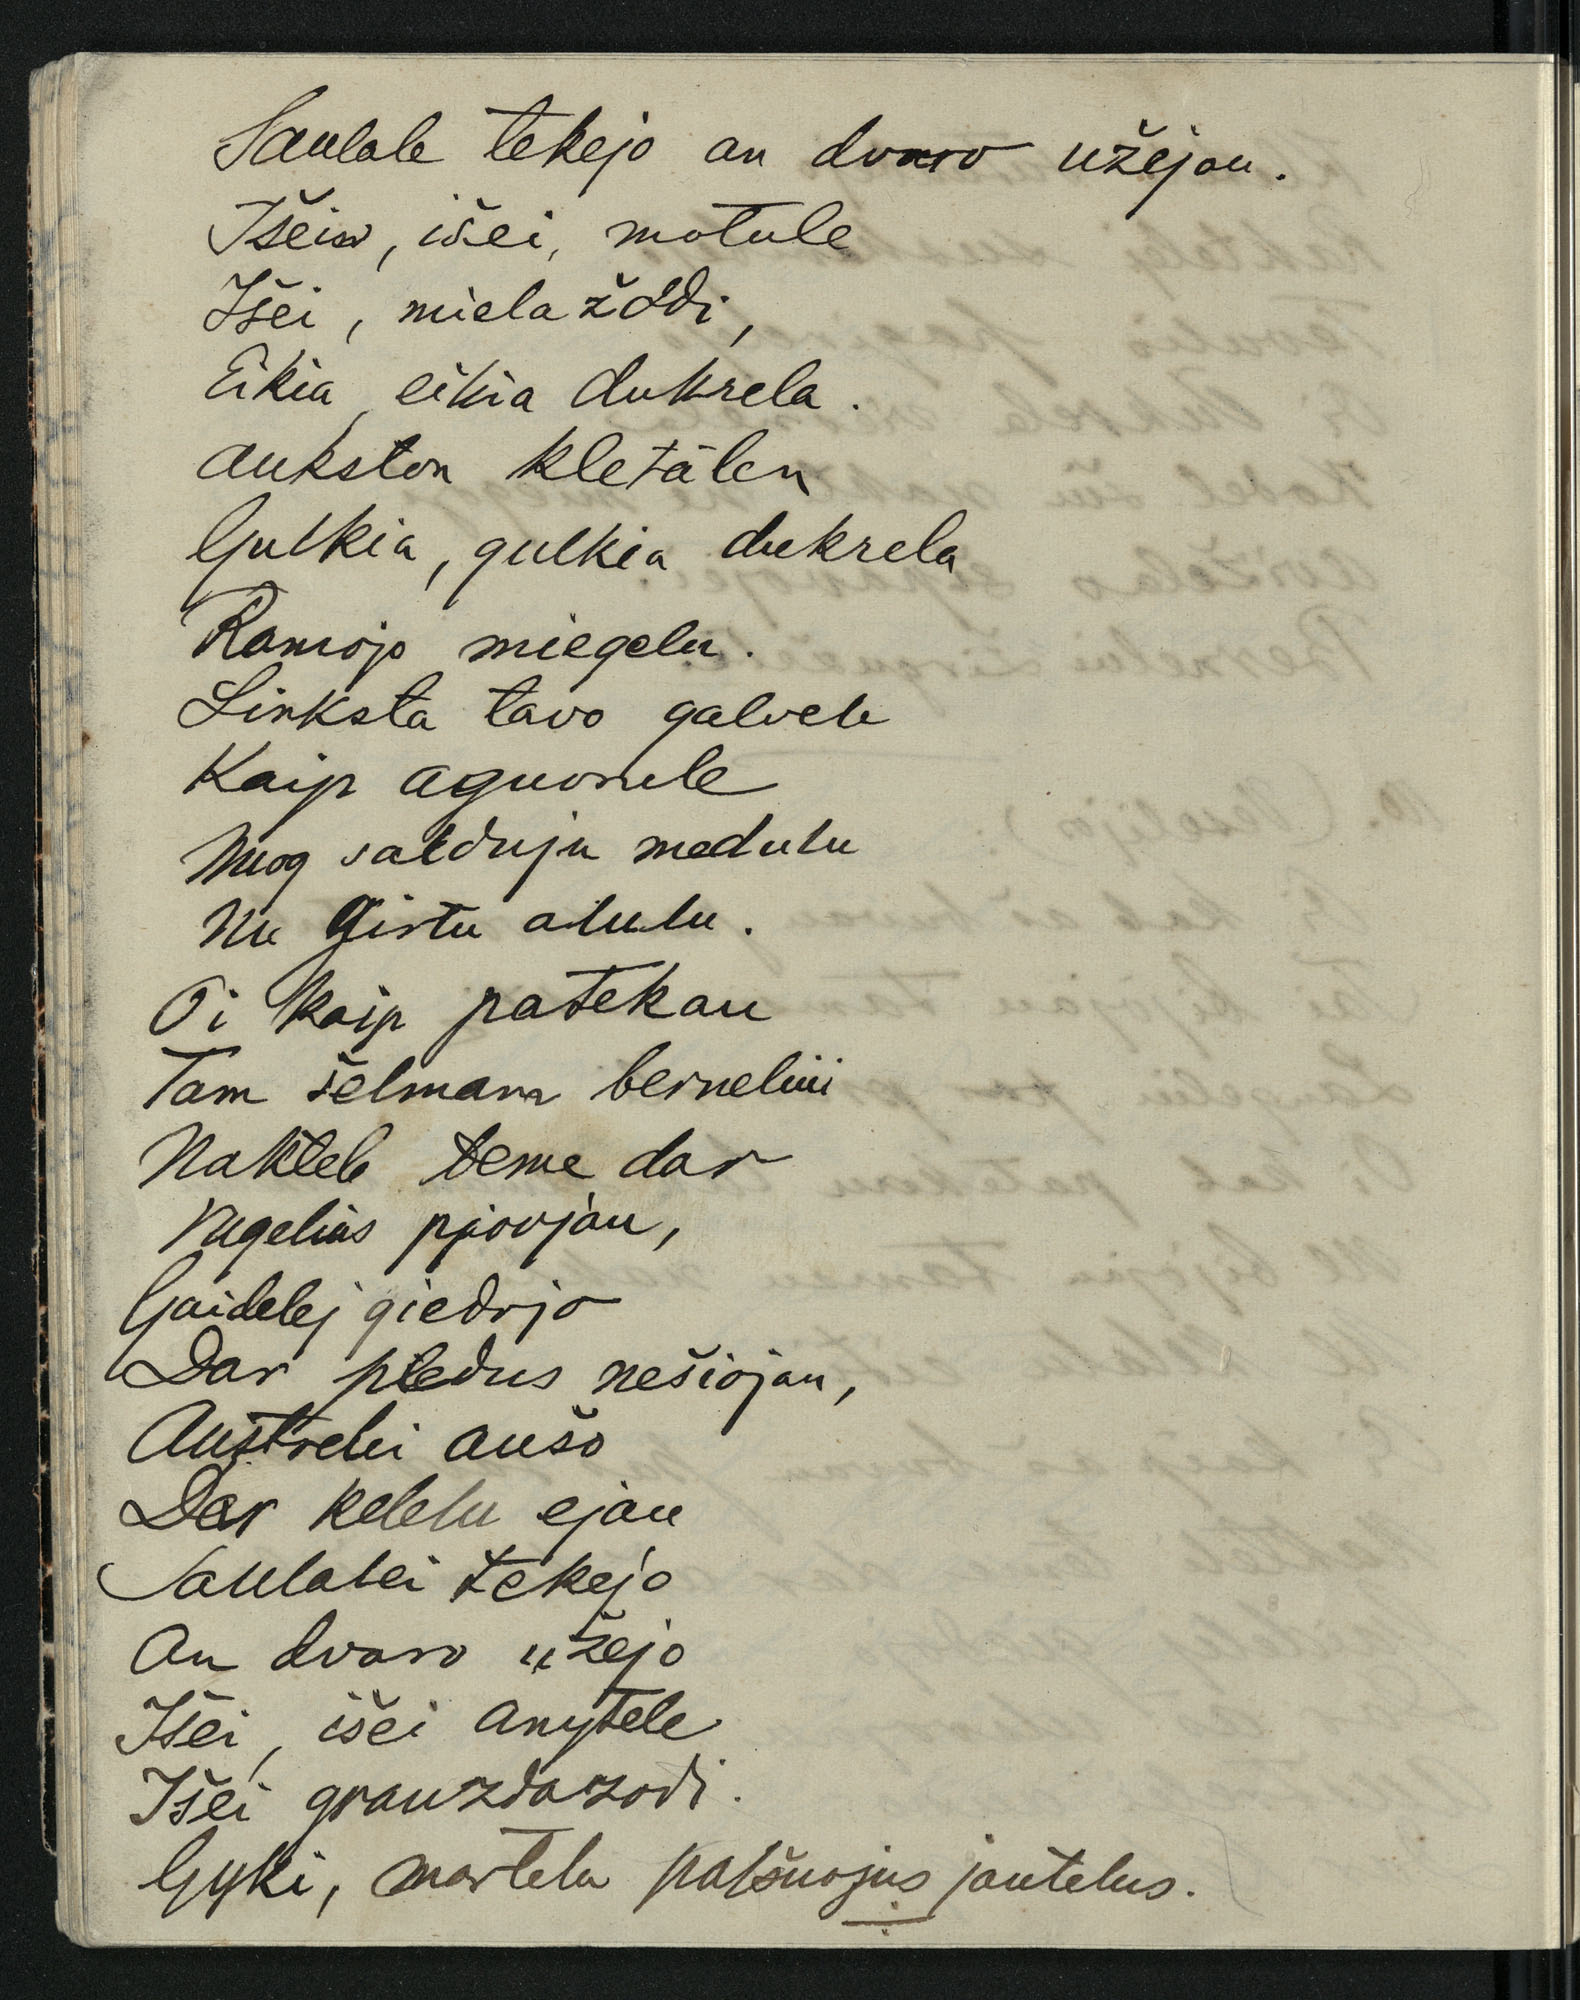 Saulale tekejo an dvaro užejau.
Išein, išei, motule
Išei, miela žodi,
Eikia, eikia dukrela.
aukston kletälen
Gulkia, gulkia dukrela
Ramojo miegelu.
Linksta tavo galvele
Kaip aguonele
Nuog salduju medulu
Nu girtu alulu.
Oi kaip patekau
Tam šelmam berneliui
Naktele teme dar
rugelius pjovjau,
Gaidelej giedojo
Dar pledus nešiojau,
Auštrelei aušo
Dar kelelu ejau
Saulalei tekejo
An dvaro užejo
Išei, išei anytele
Išei grauzdazodi.
Gyki, martela palšuojus jautelus.